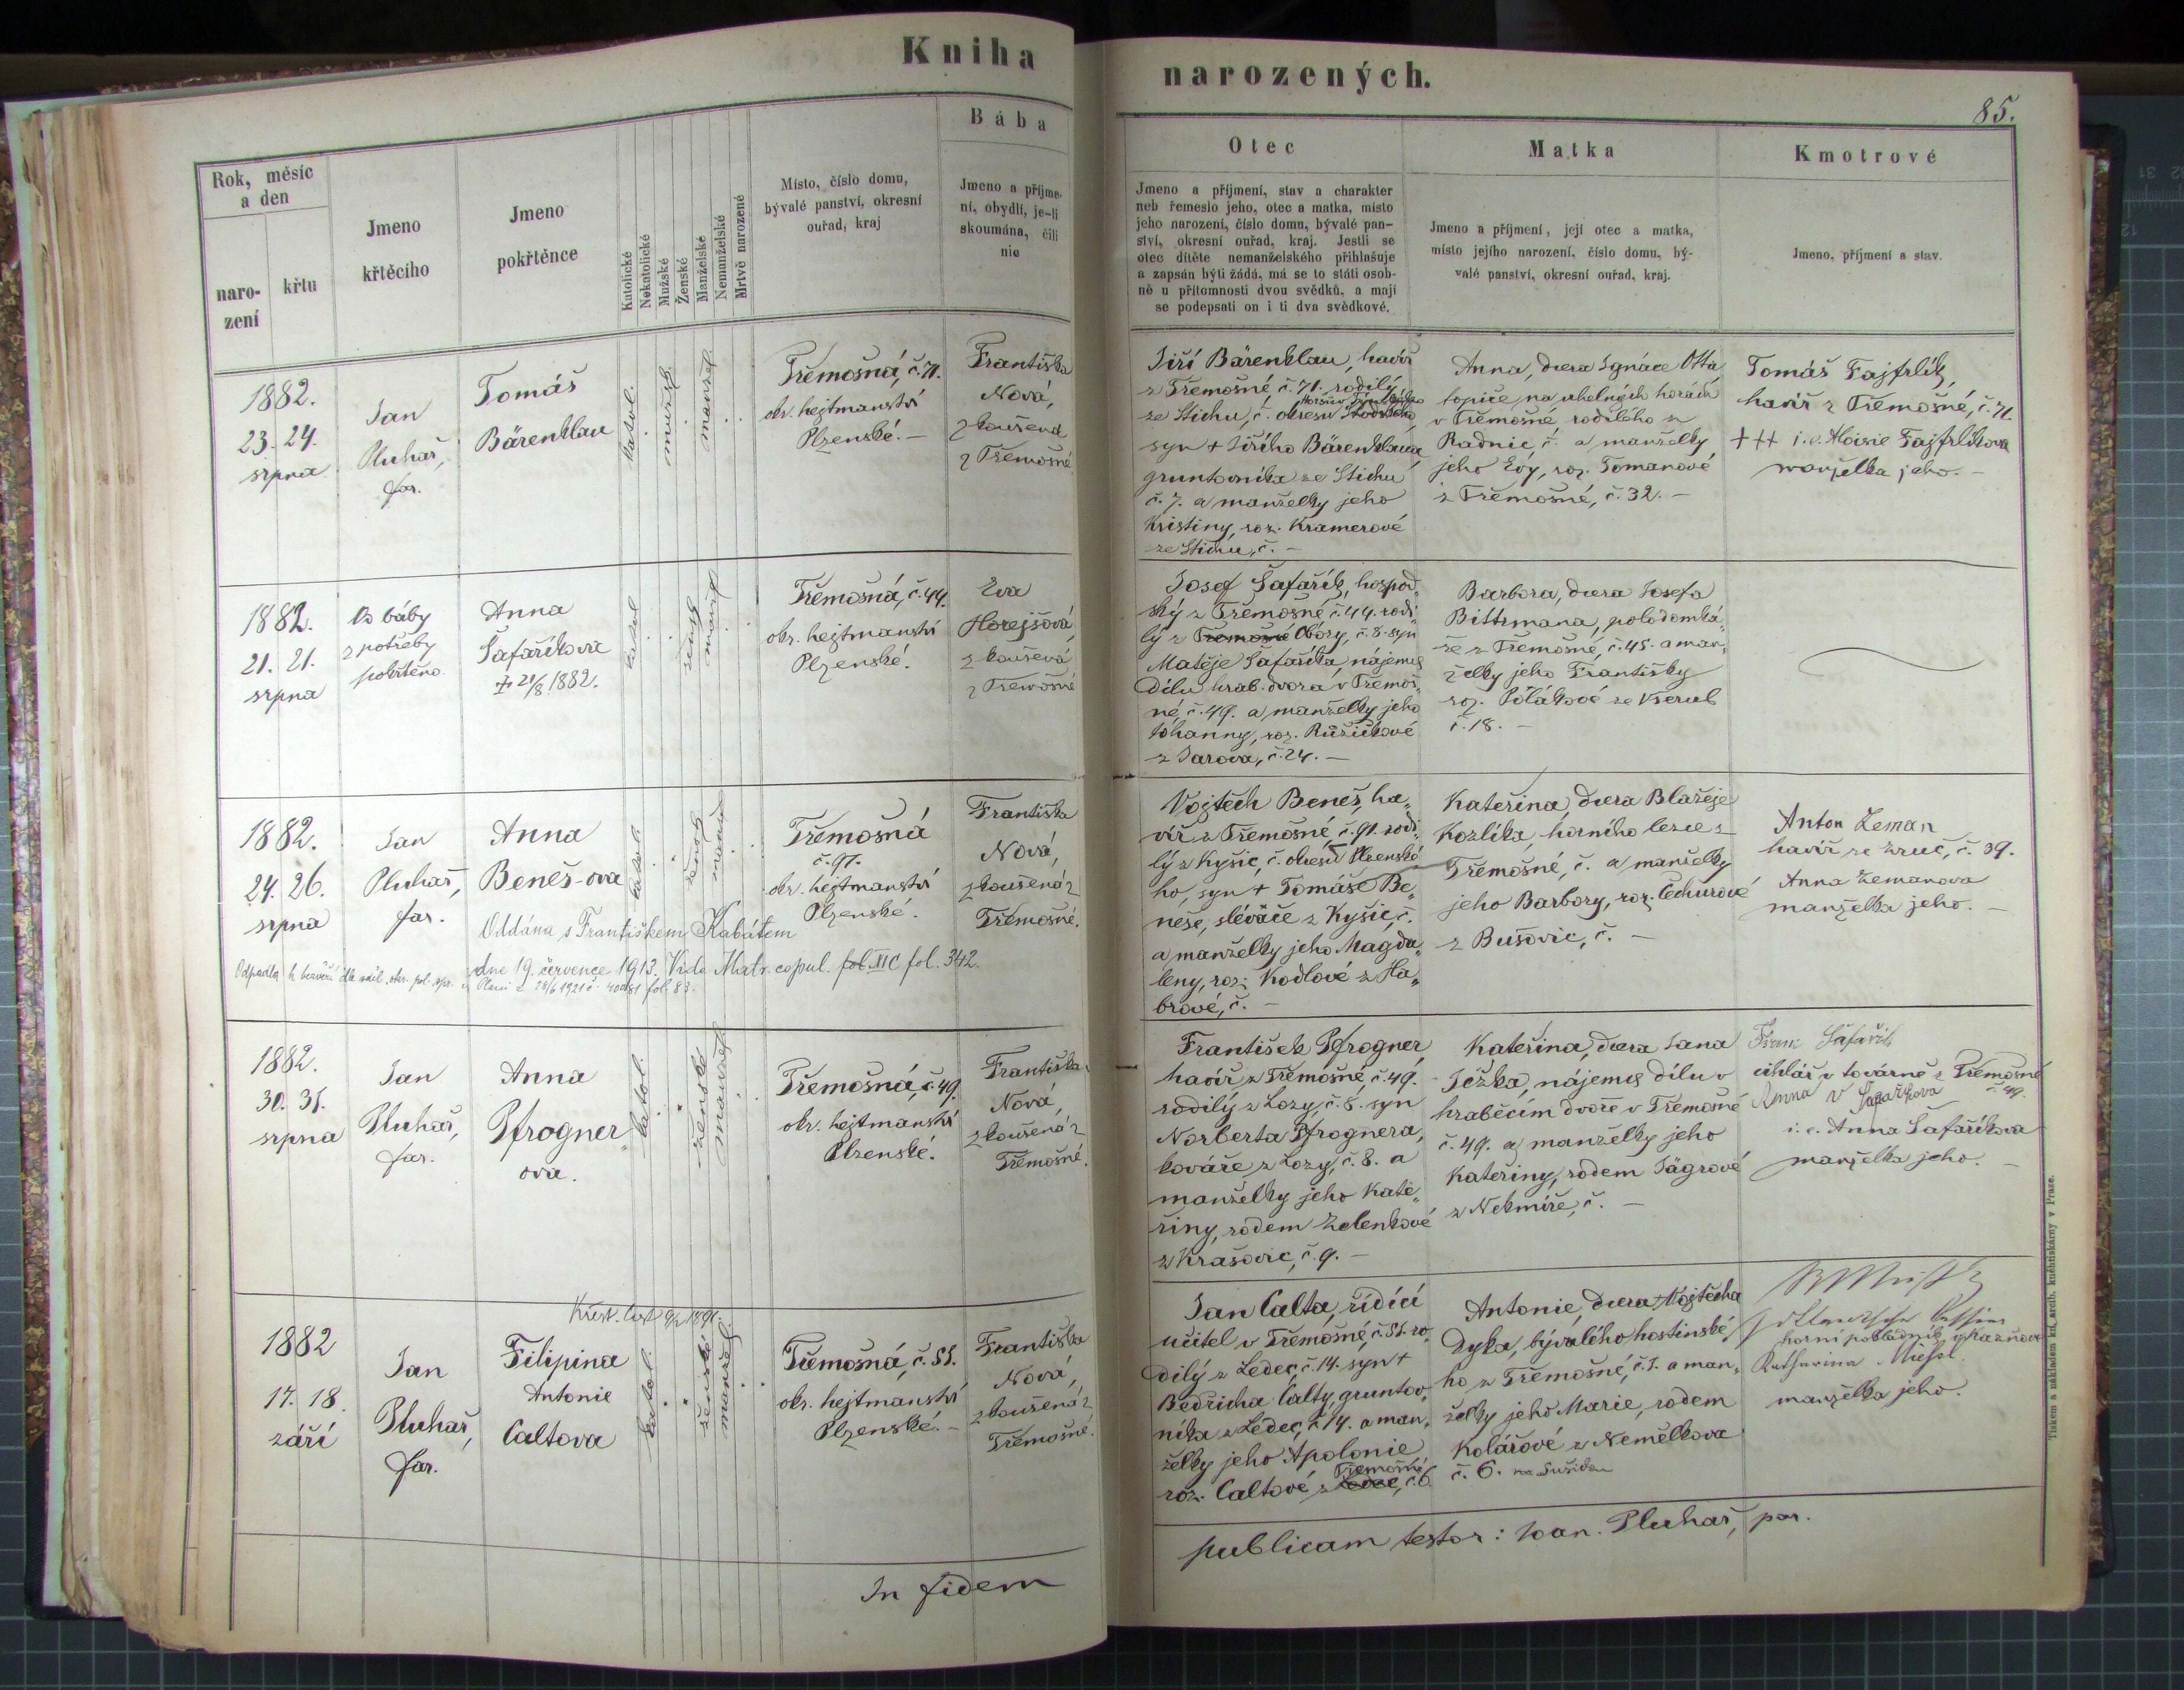 Kniha
narozených.
85.
Rok, měsíc
a den
naro-
zení
křtu
Jmeno
křtěcího
Jmeno
pokřtěnce
Katolické
Nekatolické
Mužské
Ženské
Manželské
Nemanželské
Mrtvě narozené
Místo, číslo domu,
bývalé panství, okresní
ouřad, kraj
Bába
Jmeno a příjme-
ní, obydlí, je-li
skoumána, čili
nic
Otec
Jmeno a příjmení, stav a charakter
neb řemeslo jeho, otec a matka, místo
jeho narození, číslo domu, bývalé pan-
ství, okresní ouřad, kraj. Jestli se
otec dítěte nemanželského přihlašuje
a zapsán býti žádá, má se to státi osob-
ně u přítomnosti dvou svědků, a mají
se podepsati on i ti dva svědkové.
Matka
Jmeno a příjmení, její otec a matka,
místo jejího narození, číslo domu, bý-
valé panství, okresní ouřad, kraj.
Kmotrové
Jmeno, příjmení a stav.
1882.
23. 24.
srpna
Jan
Pluhař,
far.
Tomáš
Bärenklau
katol.
mužsk.
manžel
Třemošná, č. 71.
okr. hejtmanství
Plzenské. –
Františka
Nová,
zkoušená
z Třemošné
Jiří Bärenklau, havíř
z Třemošné č. 71. rodilý
ze Stichu, č. okresu Stodského
syn + Jiřího Bärenklaua
gruntovníka ze Stichu
č. 7. a manželky jeho
Kristiny, roz. Kramerové
ze Stichu, č. –
Anna, dcera Ignáce Otta
topiče na uhelných horách
v Třemošné, rodilého z
Radnic, č. a manželky
jeho Evy, roz. Tomanové
z Třemošné, č. 32. –
Tomáš Fajfrlík,
havíř z Třemošné, č. 71.
+++ i. e. Aloisie Fajfrlíkova
manželka jeho. –
1882.
21. 21.
srpna
Od báby
z potřeby
pokřtěno.
Anna
Šafaříkova
+ 21/8 1882.
katol
žensk
manžel
Třemošná, č. 44.
okr. hejtmanství
Plzenské.
Eva
Horejšová
zkoušená
z Třemošné
Josef Šafařík, hospod-
ský z Třemošné, č. 44. rodi-
lý z Třemošné Obory, č. 8. syn
Matěje Šafaříka, nájemce
dílu hrab. dvora v Třemoš-
né č. 49. a manželky jeho
Johanny, roz. Růžičkové
z Jarova, č. 24. –
Barbora, dcera Josefa
Bittmana, polodomká-
ře z Třemošné, č. 45. a man-
želky jeho Františky
roz. Polákové ze Všerub
č. 18. –
1882.
24. 26.
srpna
Jan
Pluhař,
far.
Anna
Beneš-ova
katol
žensk
manž
Třemošná
č. 91.
okr. hejtmanství
Plzenské.
Františka
Nová,
zkoušená z
Třemošné.
Oddána s Františkem Kabátem
dne 19. července 1913. Vide Matr. copul. fol. XIC fol. 342.
Vojtěch Beneš, ha-
víř z Třemošné, č. 91. rodi-
lý z Kyšic, č. okresu Plzenské-
ho, syn + Tomáše Be-
neše, slévače z Kyšic, č.
a manželky jeho Magda-
leny, roz. Kodlové z Ha-
brové, č. –
Kateřina, dcera Blažeje
Kozlíka, horního lezce z
Třemošné, č. a manželky
jeho Barbory, roz. Čechurové
z Bušovic, č. –
Anton Zeman
havíř ze Zruč, č. 39.
Anna Zemanova
manželka jeho. –
1882.
30. 31.
srpna
Jan
Pluhař,
far.
Anna
Pfrogner-
ova.
katol.
ženské
manžel
Třemošná, č. 49.
okr. hejtmanství
Plzenské.
Františka
Nová,
zkoušená z
Třemošné.
František Pfrogner
havíř z Třemošné, č. 49.
rodilý z Lozy, č. 8. syn
Norberta Pfrognera,
kováře z Lozy, č. 8. a
manželky jeho Kate-
řiny, rodem Zelenkové
z Krašovic, č. 9. –
Kateřina, dcera Jana
Ježka, nájemce dílu v
hraběcím dvoře v Třemošné
č. 49. a manželky jeho
Kateřiny, rodem Jägrové
z Nekmíře, č. –
Franc Šafařik
cihlář v továrně z Třemošné
č. 49.
Anna Šafařikova
i. e. Anna Šafaříkova
manželka jeho. –
1882
17. 18.
září
Jan
Pluhař,
far.
Filipina
Antonie
Caltova
katol.
ženské
manžel.
Třemošná, č. 51.
okr. hejtmanství
Plzenské. –
Františka
Nová,
zkoušená z
Třemošné.
Jan Calta, řídící
učitel v Třemošné, č. 51. ro-
dilý z Ledec, č. 14. syn +
Bedřicha Calty, gruntov-
níka z Ledec, č. 14. a man-
želky jeho Apolonie
roz. Caltové z Ledec, Třemošné č. 6.
Antonie, dcera Vojtěcha
Dyka, bývalého hostinské-
ho z Třemošné, č. 1. a man-
želky jeho Marie, rodem
Kolářové z Nemělkova
č. 6. na Sušicku
horní pokladník z Kaznova
Katharina
manželka jeho.
In fidem
publicam testor: Joan. Pluhař, par.
Tiskem a nákladem kn. arcib. kněhtiskárny v Praze.